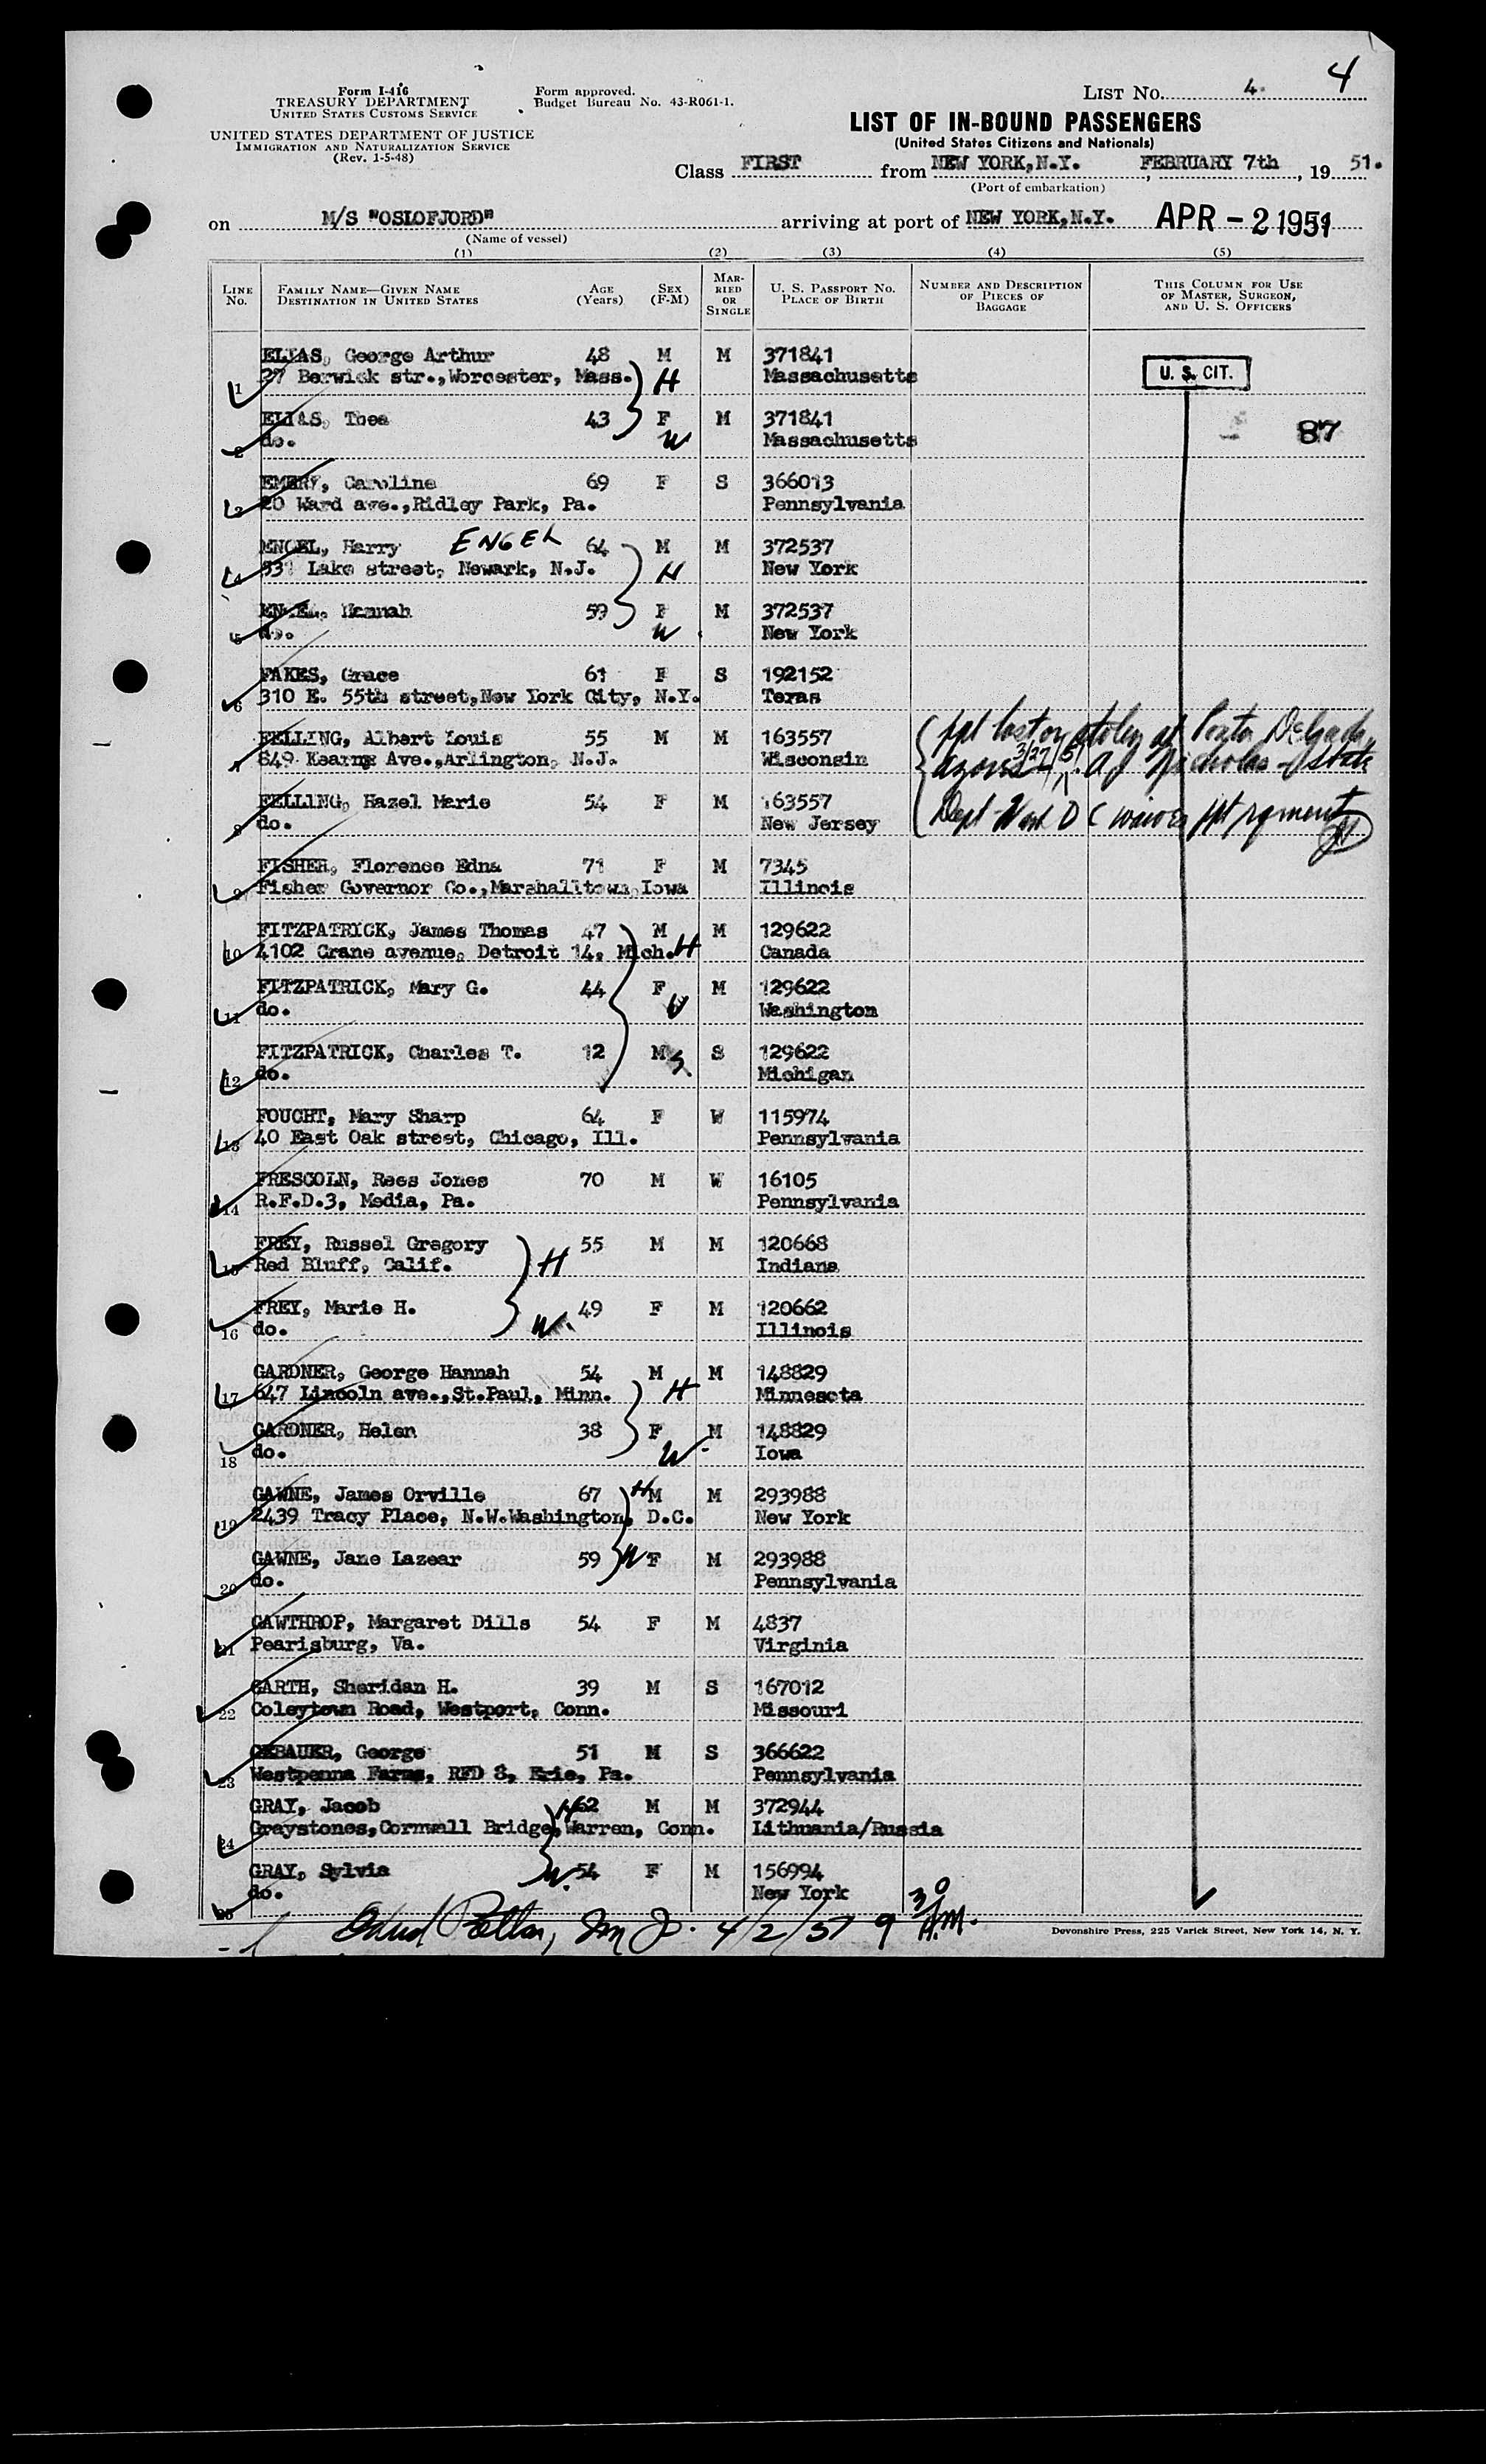 4
Form I-416
TREASURY DEPARTMENT
UNITED STATES CUSTOMS SERVICE
UNITED STATES DEPARTMENT OF JUSTICE
IMMIGRATION AND NATURALIZATION SERVICE
(Rev. 1-5-48)
Form approved.
Budget Bureau No. 43-R061-1.
LIST NO. 4.
LIST OF IN-BOUND PASSENGERS
(United States Citizens and Nationals)
Class FIRST from NEW YORK,N.Y. , FEBRUARY 7th , 19 51.
(Port of embarkation)
on M/S "OSLOFJORD" arriving at port of NEW YORK,N.Y. APR - 2 1951
(Name of vessel)
(1) (2) (3) (4) (5)
LINE No. FAMILY NAME—GIVEN NAME DESTINATION IN UNITED STATES AGE (Years) SEX (F-M) MARRIED OR SINGLE U. S. PASSPORT NO. PLACE OF BIRTH NUMBER AND DESCRIPTION OF PIECES OF BAGGAGE THIS COLUMN FOR USE OF MASTER, SURGEON, AND U. S. OFFICERS
ELIAS, George Arthur 48 M M 371841
1 27 Berwick str.,Worcester, Mass. H Massachusetts U. S. CIT.
ELIAS, Thea 43 F M 371841
2 do. W Massachusetts 87
EMERY, Caroline 69 F S 366013
3 20 Ward ave.,Ridley Park, Pa. Pennsylvania
ENGEL, Harry ENGEL 64 M M 372537
4 Lake street, Newark, N.J. H New York
ENGEL, Hannah 59 F M 372537
5 do. W New York
FAKES, Grace 61 F S 192152
6 310 E. 55th street,New York City, N.Y. Texas
FELLING, Albert Louis 55 M M 163557 ppt lost or stolen at Ponta Delgada,
7 849 Kearny Ave.,Arlington, N.J. Wisconsin Azores 3/27/51. A J Nicholas - State
FELLING, Hazel Marie 54 F M 163557
8 do. New Jersey Dept Wash D C waives ppt rqment
FISHER, Florence Edna 71 F M 7345
9 Fisher Governor Co.,Marshalltown,Iowa Illinois
FITZPATRICK, James Thomas 47 M M 129622
10 4102 Crane avenue, Detroit 14, Mich. H Canada
FITZPATRICK, Mary G. 44 F M 129622
11 do. W Washington
FITZPATRICK, Charles T. 12 M S S 129622
12 do. Michigan
FOUCHT, Mary Sharp 64 F W 115974
13 40 East Oak street, Chicago, Ill. Pennsylvania
FRESCOLN, Rees Jones 70 M W 16105
14 R.F.D.3, Media, Pa. Pennsylvania
FREY, Russel Gregory 55 M M 120668
15 Red Bluff, Calif. H Indiana
FREY, Marie H. 49 F M 120662
16 do. W Illinois
GARDNER, George Hannah 54 M M 148829
17 647 Lincoln ave.,St.Paul, Minn. H Minnesota
GARDNER, Helen 38 F M 148829
18 do. W Iowa
GAWNE, James Orville 67 H M M 293988
19 2439 Tracy Place, N.W.Washington, D.C. New York
GAWNE, Jane Lazear 59 W F M 293988
20 do. Pennsylvania
GAWTHROP, Margaret Dills 54 F M 4837
21 Pearisburg, Va. Virginia
GARTH, Sheridan H. 39 M S 167012
22 Coleytown Road, Westport, Conn. Missouri
GEBAUER, George 51 M S 366622
23 Westpenna Farms, RFD 8, Erie, Pa. Pennsylvania
GRAY, Jacob H 62 M M 372944
24 Graystones,Cornwall Bridge,Warren, Conn. Lithuania/Russia
GRAY, Sylvia W. 54 F M 156994
25 do. New York
4/2/51 9 30 A.M.
Devonshire Press, 225 Varick Street, New York 14, N. Y.